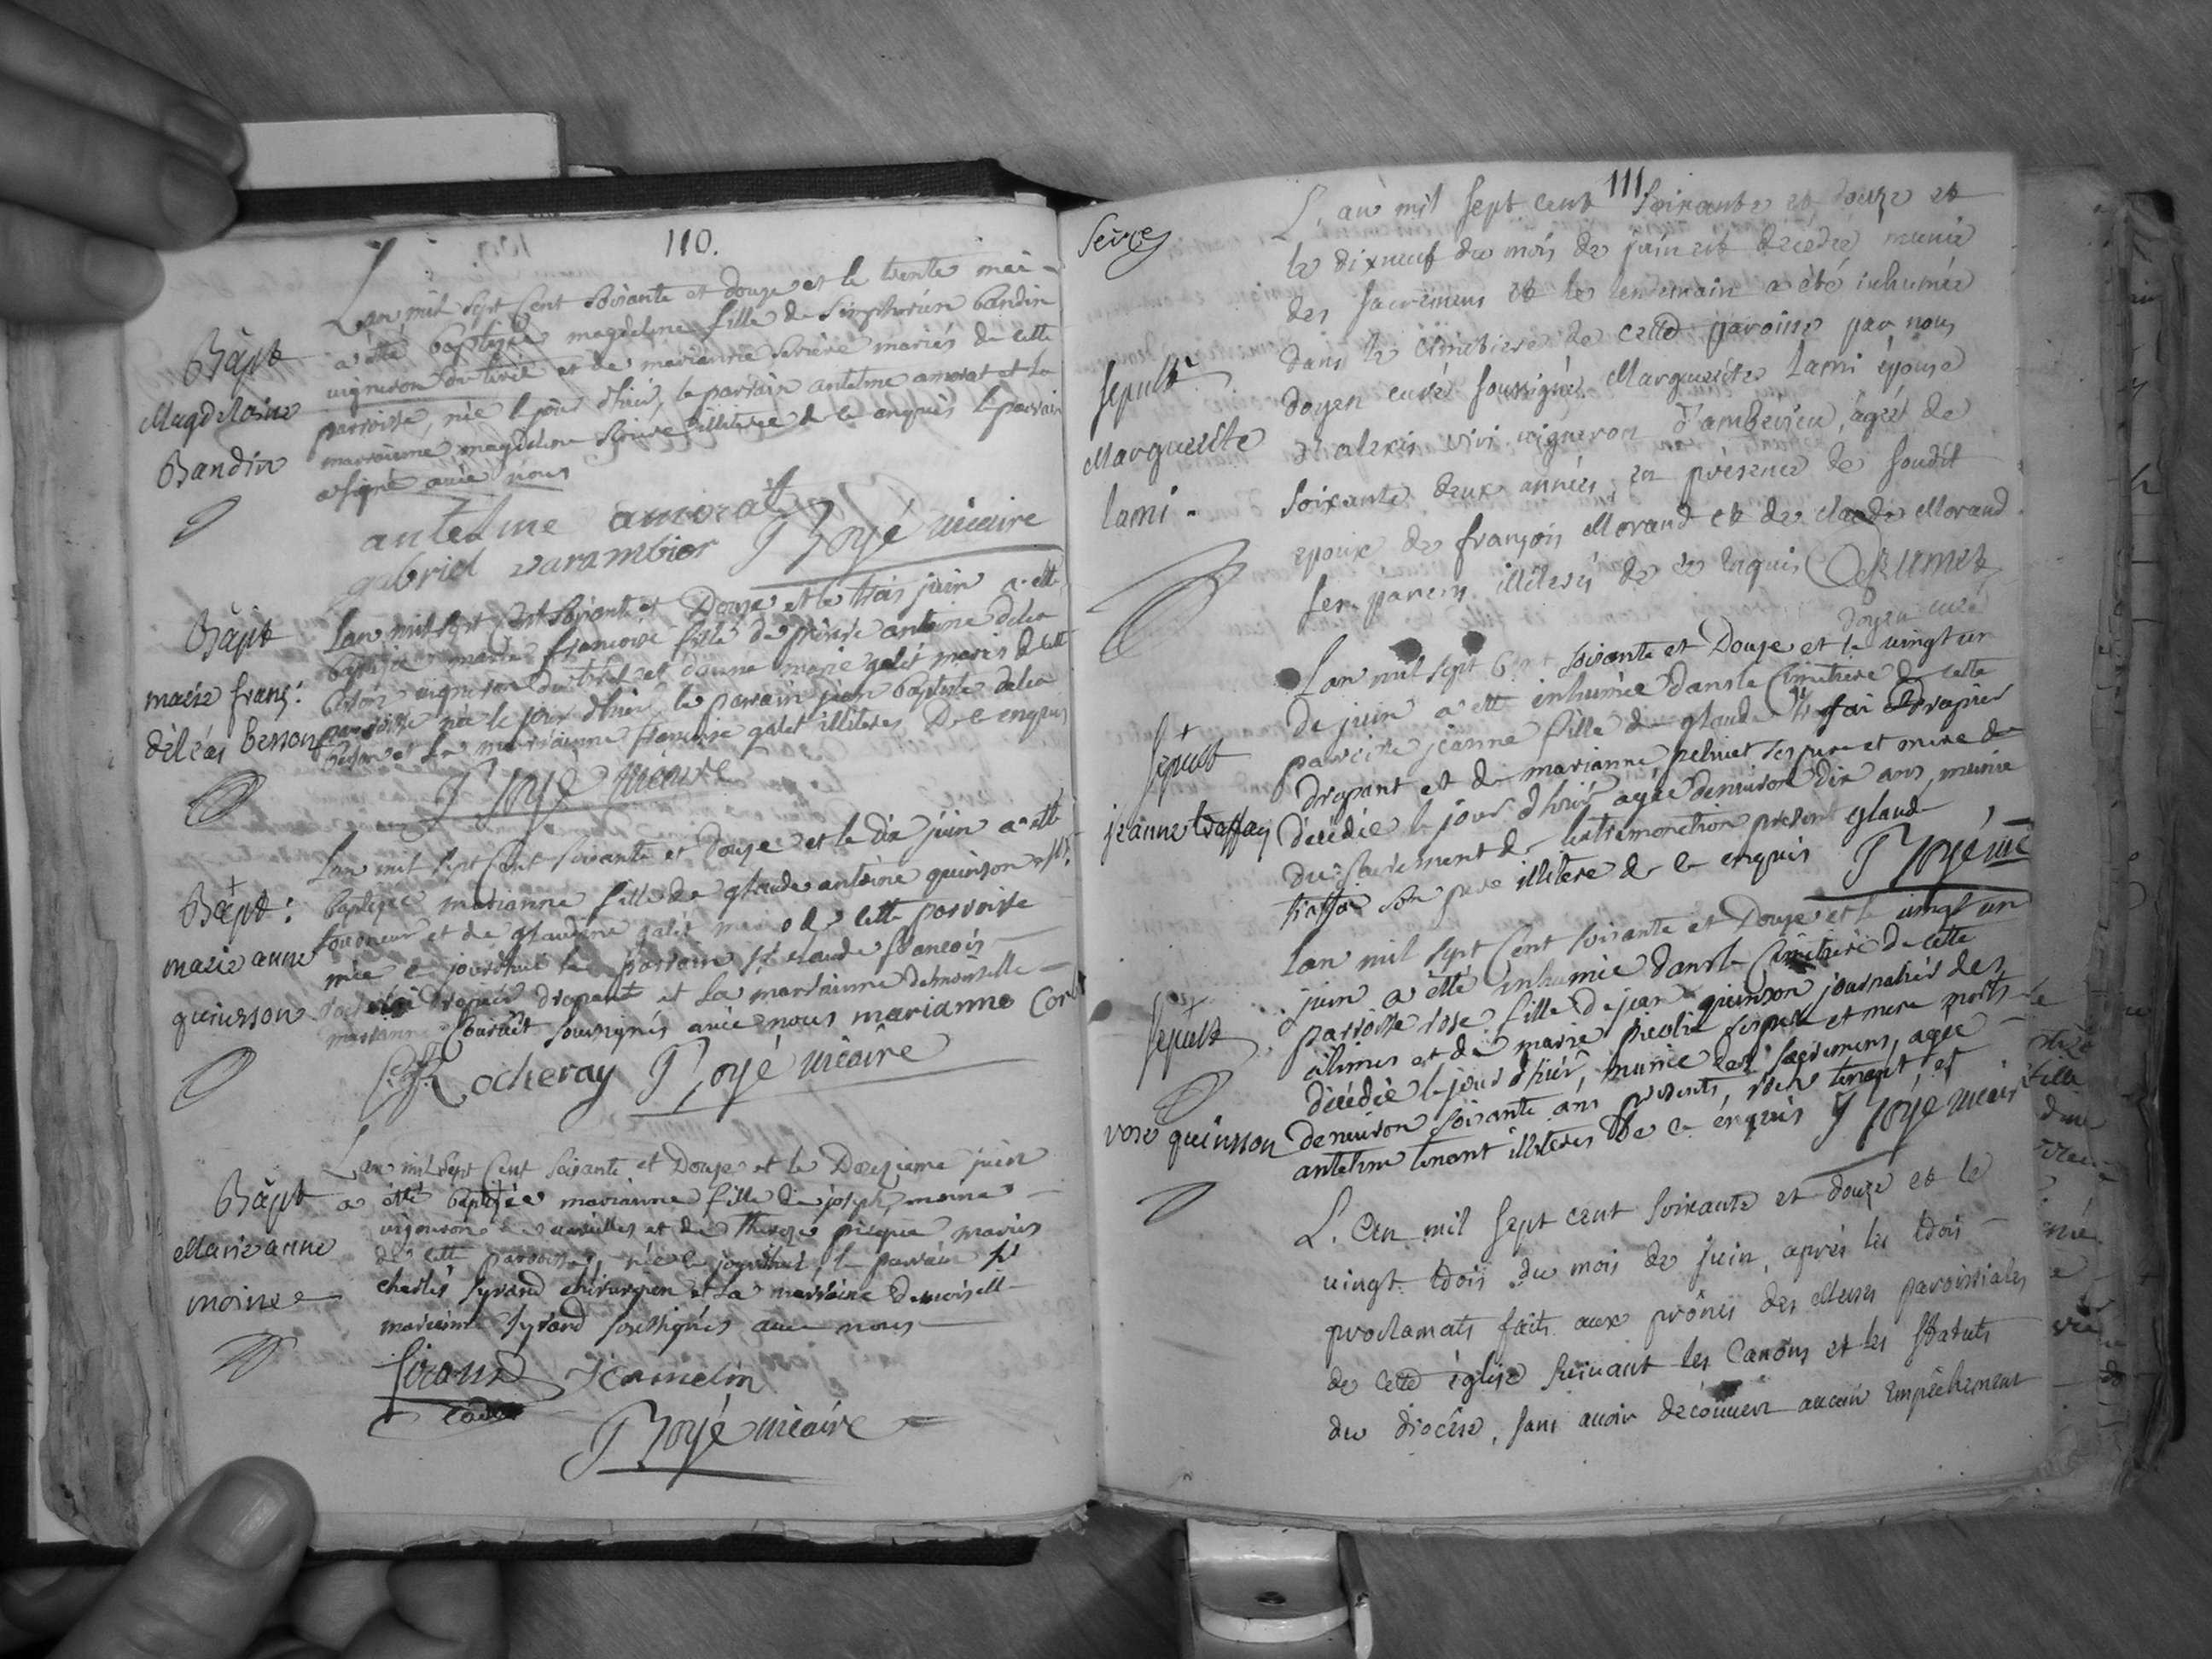 110.
Bapt
Magdelaine
Bandin
Lan mil sept Cent soixante et douze et le trente mai
a etté baptisée magdeline fille de simphorien bandin
vigneron du tiret et de marianne serière mariés de cette
parroisse, née le jour d'hier, le parrain antelme amorat et la
marrainne magdeline illiterée de ce enquis le parrain
a signé avec nous
antelme amorat
gabriel varambier J Royé vicaire
Bapt
marie franç:
déléas besson
Lan mil sept Cent soixante et Douze et le trois juin a etté
baptisée marie francoise fille de pierre antoine deléa
besson vigneron du tiret et d'anne marie galet mariés de cette
parroisse née le jour d'hier, le parrain jean baptiste deléa
besson et la marrainne francoise galet illiterés De ce enquis
J Royé vicaire
Bapt:
marie anne
quinsson
Lan mil sept Cent soixante et Douze et le dix juin a etté
baptisée marianne fille de glaude antoine quinson
et de glaudine galet mariés de cette parroisse
née ce jourdhui le parrain sr claude francois
drapier drapant et la marrainne demoiselle
marianne soussignés avec nous marianne Cor
Rocheray J Royé vicaire
Bapt
Marie anne
moinne
Lan mil sept Cent soixante et Douze et le Douzieme juin
a etté baptisée marianne fille de joseph moinne
vigneron des vareilles et de Thereze mariés
de cette parroisse, née ce jourdhui, le parrain sr
charles syrand chirurgien et la marraine Demoiselle
marianne syrand soussignés avec nous
Sirand jcamelin
cadet
J Royé vicaire
111
Seize
Sepult
Marguerite
lami.
L'an mil sept cent soixante et douze et
le dixneuf du mois de juin est decedée, munie
des sacremens et le lendemain a été inhumée
dans le cimetiere de cette paroisse par nous
doyen curé soussigné Marguerite lami épouse
d'alexis vigneron d'amberieu, agée de
soixante deux années en présence de soudit
epoux de françois Morand et de claude Morand
ses parens illiterés de ce enquis Brumet
doyen curé
Sepult
jeanne traffay
Lan mil sept Cent soixante et Douze et le vingt un
de juin a etté inhumée dans le Cimetiere de cette
parroisse jeanne fille de glaude drapier
drapant et de marianne pelinet ses pere et mere
décédée le jour d'hier agée denviron dix ans, munie
du sacrement de lextremonction present glaude
traffai son pere illitere de ce enquis J Royé vic
Sepult
rose quinsson
Lan mil sept Cent soixante et Douze et le vingt un
juin a etté inhumée dans le Cimetiere de cette
parroisse rose fille de jean quinson journalier des
alimes et de marie ses pere et mere morts
décédée le jour d'hier, munie des sacremens, agée
denviron soixante ans presents, tenant, et
antelme tenant illiterés De ce enquis J Royé vicaire
L'an mil sept cent soixante et douze et le
vingt trois du mois de juin, après les trois
proclamats faits aux prônes des Messes paroissiales
de cette église suivant les Canons et les Statuts
du diocèse, sans avoir découvert aucun empêchement